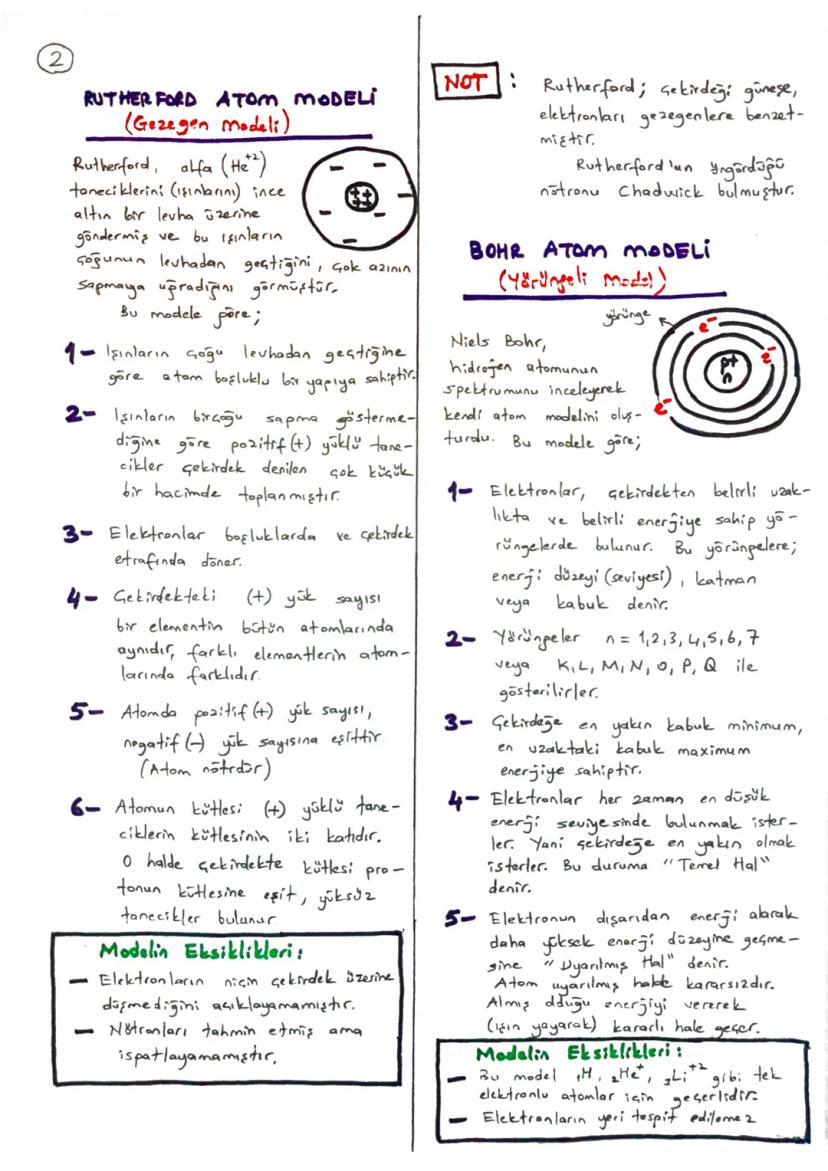 2
RUTHERFORD ATOM MODELİ
(Gezegen Modeli)
Rutherford, alfa (He⁺²)
taneciklerini (ışınlarını) ince
altın bir levha üzerine
göndermiş ve bu ışınların
çoğunun levhadan geçtiğini, çok azının
sapmaya uğradığını görmüştür.
Bu modele göre;
1- Işınların çoğu levhadan geçtiğine
göre atom boşluklu bir yapıya sahiptir.
2- Işınların birçoğu sapma gösterme-
diğine göre pozitif (+) yüklü tane-
cikler çekirdek denilen çok küçük
bir hacimde toplanmıştır.
3- Elektronlar boşluklarda ve çekirdek
etrafında döner.
4- Çekirdekteki (+) yük sayısı
bir elementin bütün atomlarında
aynıdır, farklı elementlerin atom-
larında farklıdır.
5- Atomda pozitif (+) yük sayısı,
negatif (-) yük sayısına eşittir
(Atom nötrdür)
6- Atomun kütlesi (+) yüklü tane-
ciklerin kütlesinin iki katıdır.
O halde çekirdekte kütlesi pro-
tonun kütlesine eşit, yüksüz
tanecikler bulunur
Modelin Eksiklikleri:
- Elektronların niçin çekirdek üzerine
düşmediğini açıklayamamıştır.
- Nötronları tahmin etmiş ama
ispatlayamamıştır.
NOT : Rutherford; çekirdeği güneşe,
elektronları gezegenlere benzet-
miştir.
Rutherford'un öngördüğü
nötronu Chadwick bulmuştur.
BOHR ATOM MODELİ
(Yörüngeli Model)
yörünge
e⁻
e⁻
e⁻
p+
n
Niels Bohr,
hidrojen atomunun
spektrumunu inceleyerek
kendi atom modelini oluş-
turdu. Bu modele göre;
1- Elektronlar, çekirdekten belirli uzak-
lıkta ve belirli enerjiye sahip yö-
rüngelerde bulunur. Bu yörüngelere;
enerji düzeyi (seviyesi), katman
veya kabuk denir.
2- Yörüngeler n = 1,2,3,4,5,6,7
veya K,L,M,N,O,P,Q ile
gösterilirler.
3- Çekirdeğe en yakın kabuk minimum,
en uzaktaki kabuk maximum
enerjiye sahiptir.
4- Elektronlar her zaman en düşük
enerji seviyesinde bulunmak ister-
ler. Yani çekirdeğe en yakın olmak
isterler. Bu duruma "Temel Hal"
denir.
5- Elektronun dışarıdan enerji alarak
daha yüksek enerji düzeyine geçme-
sine "Uyarılmış Hal" denir.
Atom uyarılmış halde kararsızdır.
Almış olduğu enerjiyi vererek
(ışın yayarak) kararlı hale geçer.
Modelin Eksiklikleri:
- Bu model ₁H, ₂He⁺, ₃Li⁺² gibi tek
elektronlu atomlar için geçerlidir.
- Elektronların yeri tespit edilemez